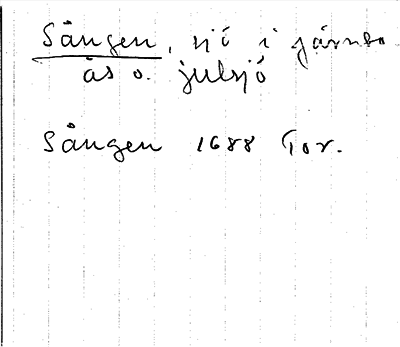 Sången, sjö i Järvsö
ås o. Julsjö
Sången 1688 Tor.